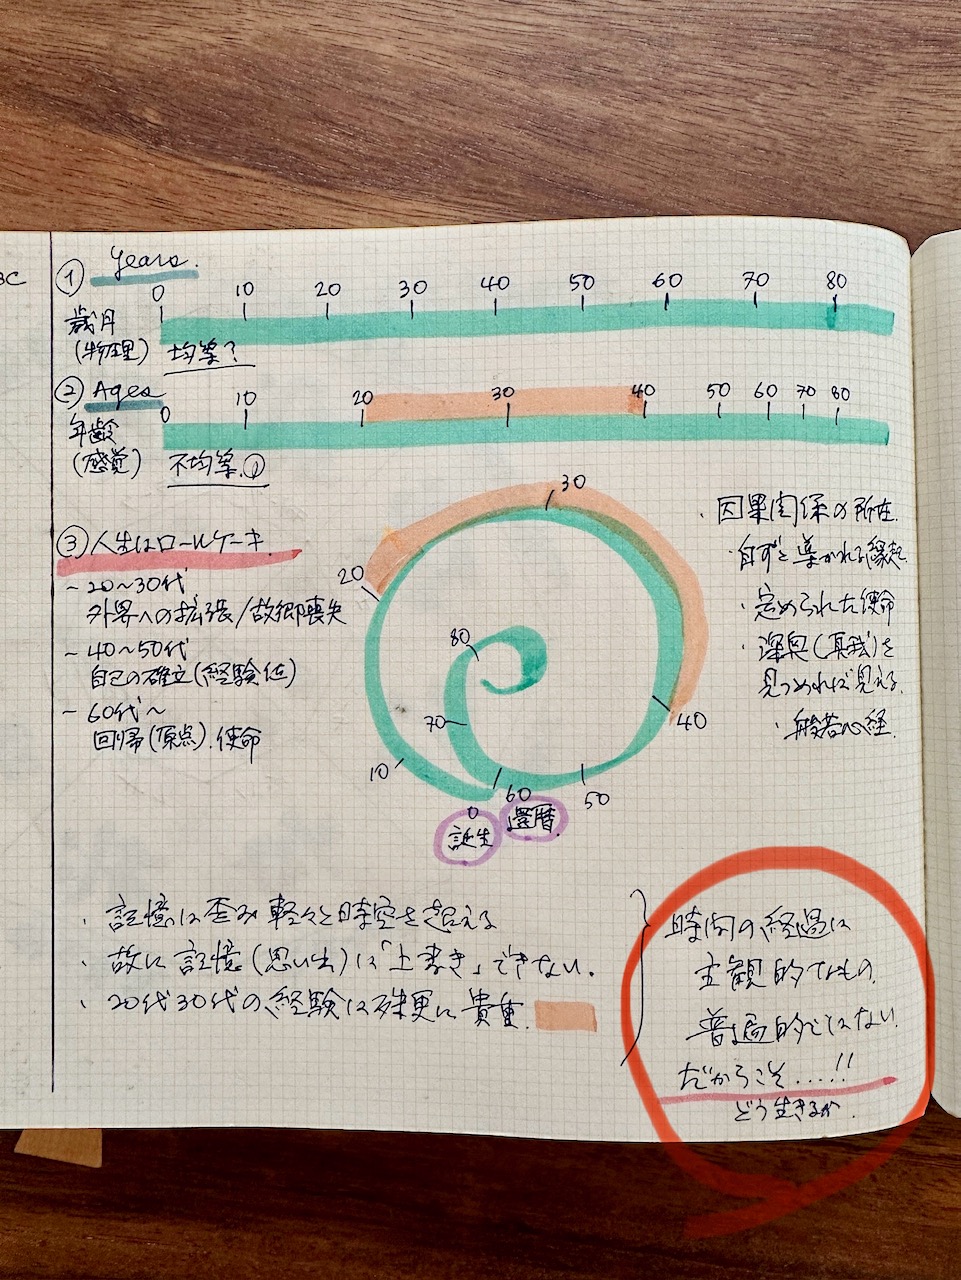 BC
① Years.
0 10 20 30 40 50 60 70 80
歳月
(物理) 均等?
② Ages
0 10 20 30 40 50 60 70 80
年齢
(感覚) 不均等.①
③ 人生はロールケーキ.
~20~30代
外界への拡張/故郷喪失
~40~50代
自己の確立(経験値)
~60代~
回帰(原点).使命
0 10 20 30 40 50 60 70 80
誕生
還暦
・因果関係の所在.
・自ずと導かれる縁起.
・定められた使命
・深奥(真我)を
見つめれば見える.
・般若心経.
・記憶は歪み軽々と時空を超える
・故に記憶(思い出)は「上書き」できない.
・20代30代の経験は殊更に貴重.
時間の経過は
主観的なもの.
普遍的ではない.
だからこそ.....!!
どう生きるか.